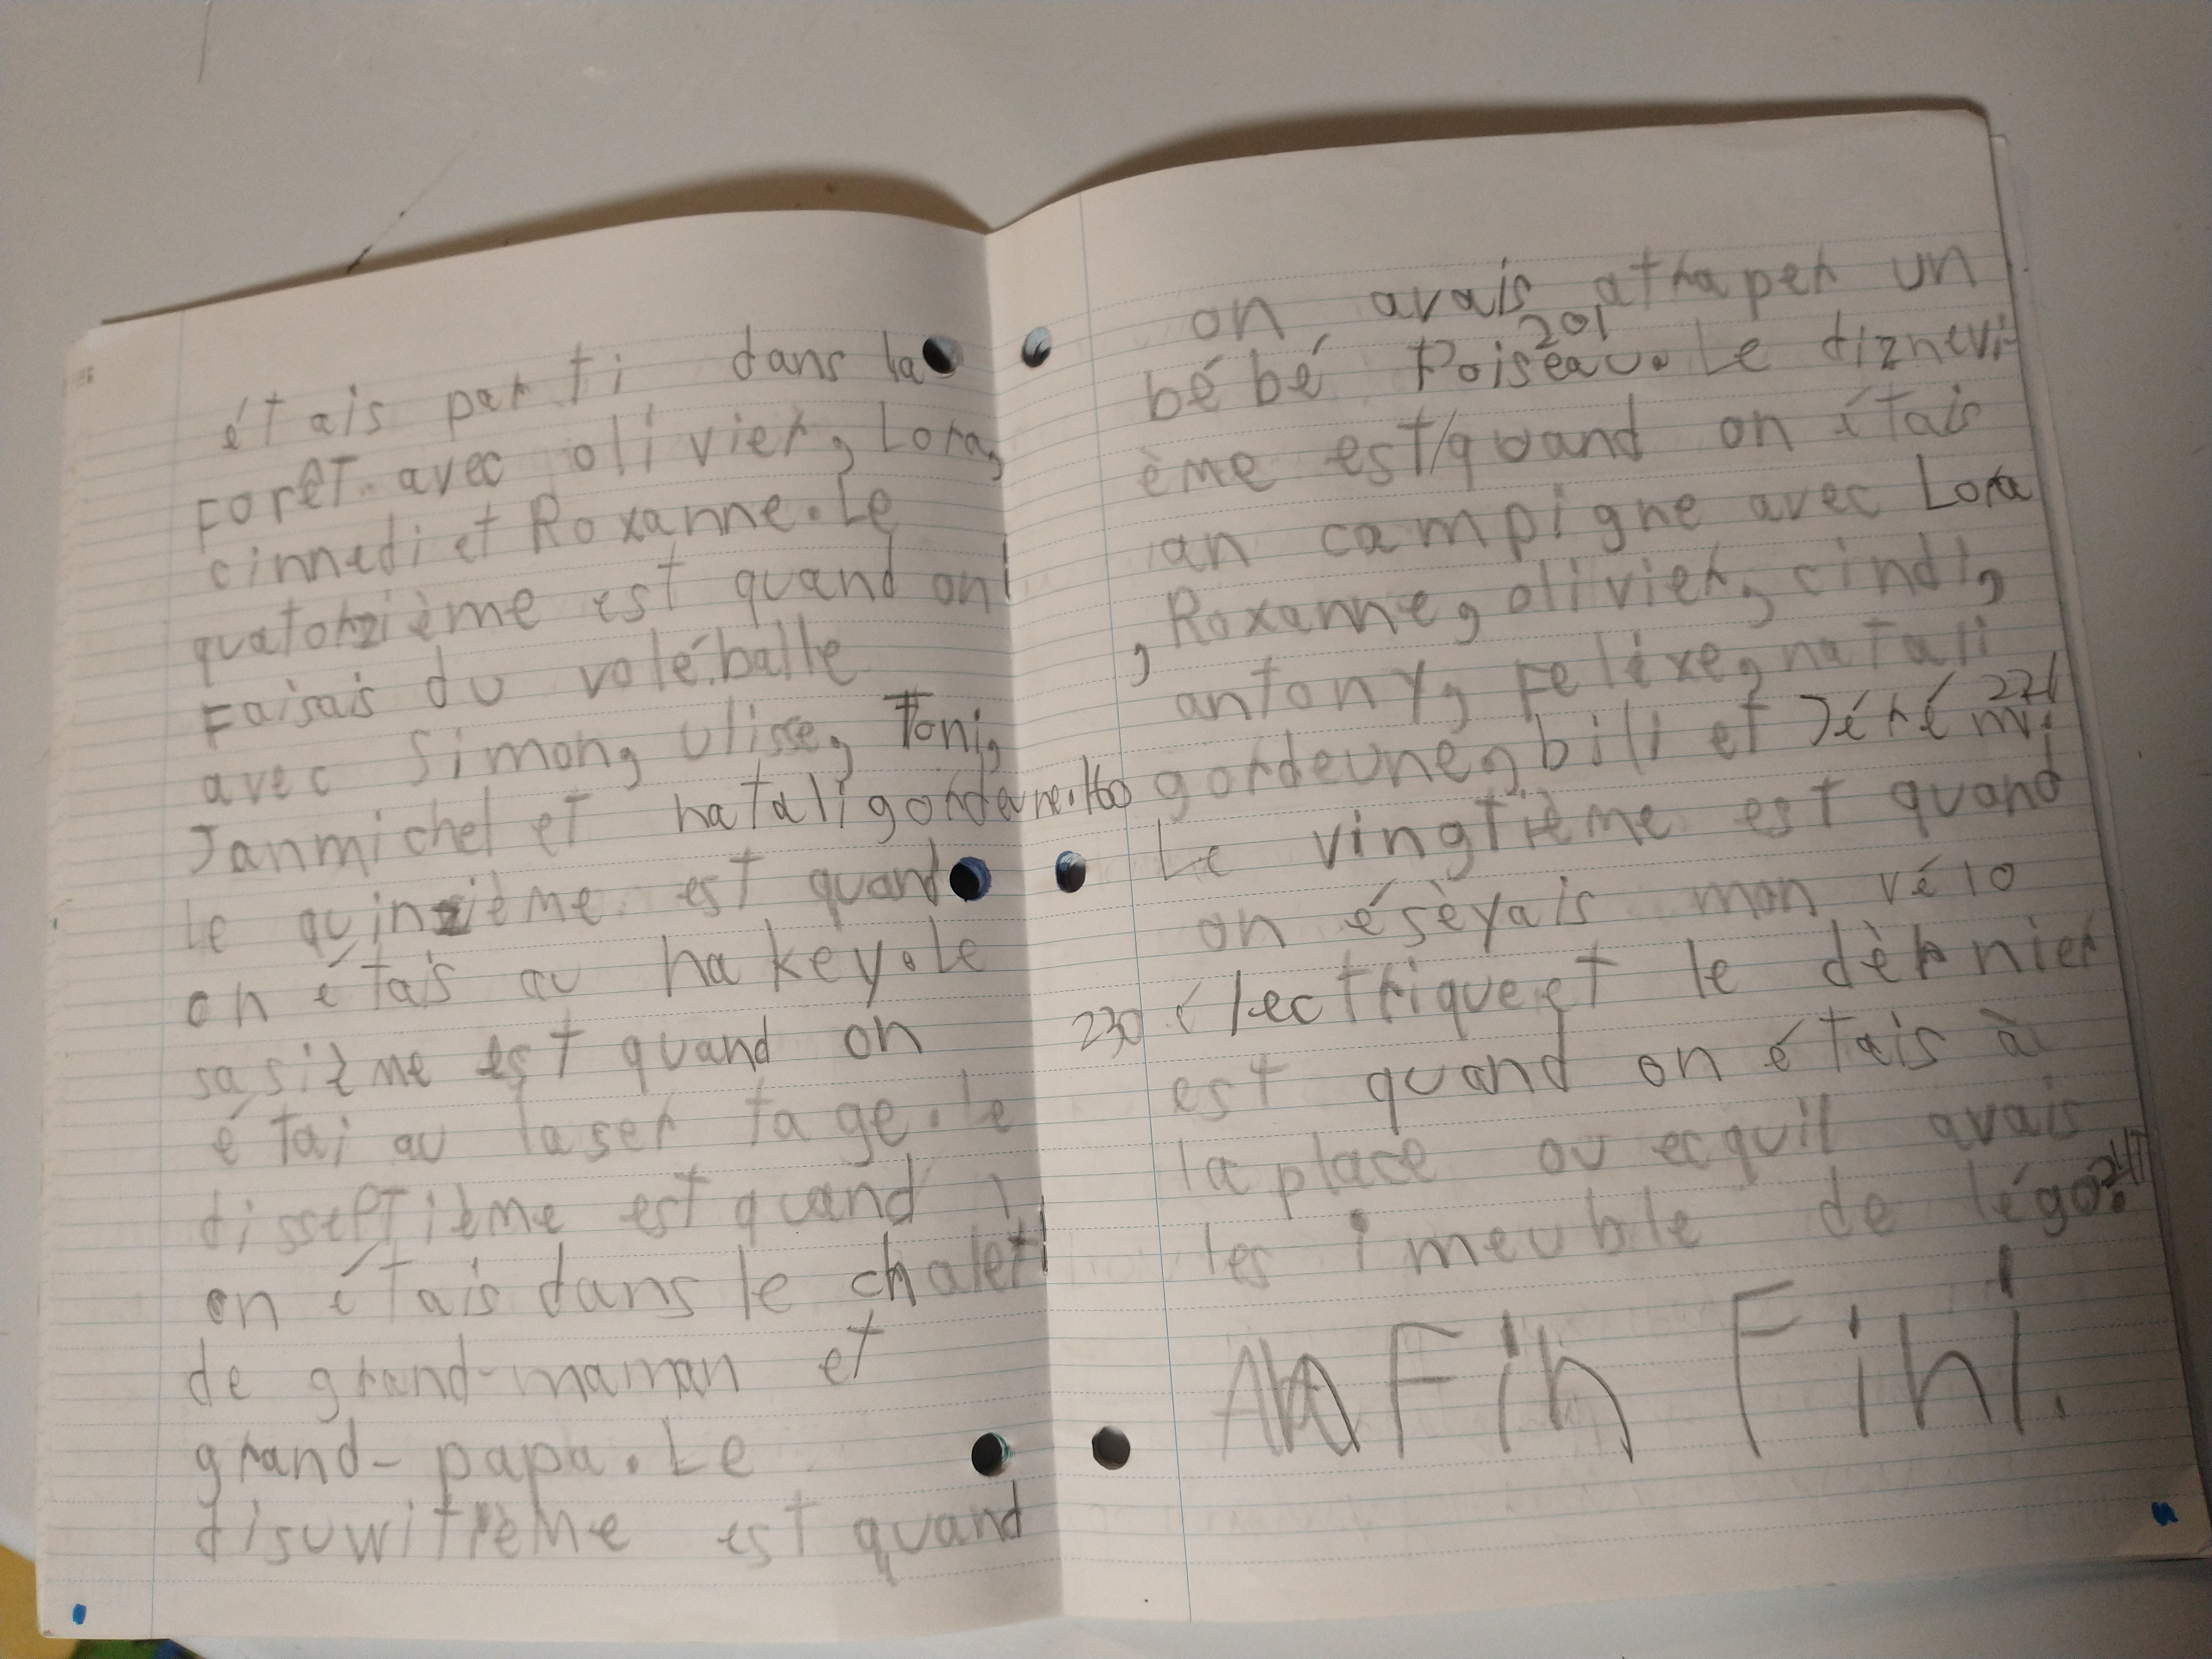 étais parti dans la
Forêt avec olivier, Lora,
cinnedi et Roxanne. Le
quatorzième est quand on
Faisais du voléballe
avec Simon, ulisse, Toni,
Janmichel et natali gordeune. 160
Le quinzième est quand
on étais au hakey. Le
sasième est quand on
étai au laser tage. Le
disseptième est quand
on étais dans le chalet
de grand-maman et
grand-papa. Le
disuwitième est quand
on avais atraper un
201
bébé Poiseau. Le diznevi
ème est/quand on étais
an campigne avec Lora
, Roxanne, olivier, cindi,
antony, Felixe, natali
221
gordeune, bili et Jérémi.
Le vingtième est quand
on éséyais mon vélo
230 électrique et le dèrnier
est quand on étais à
la place ou ecquil avais
les imeuble de légo. 241
Fin Fini.